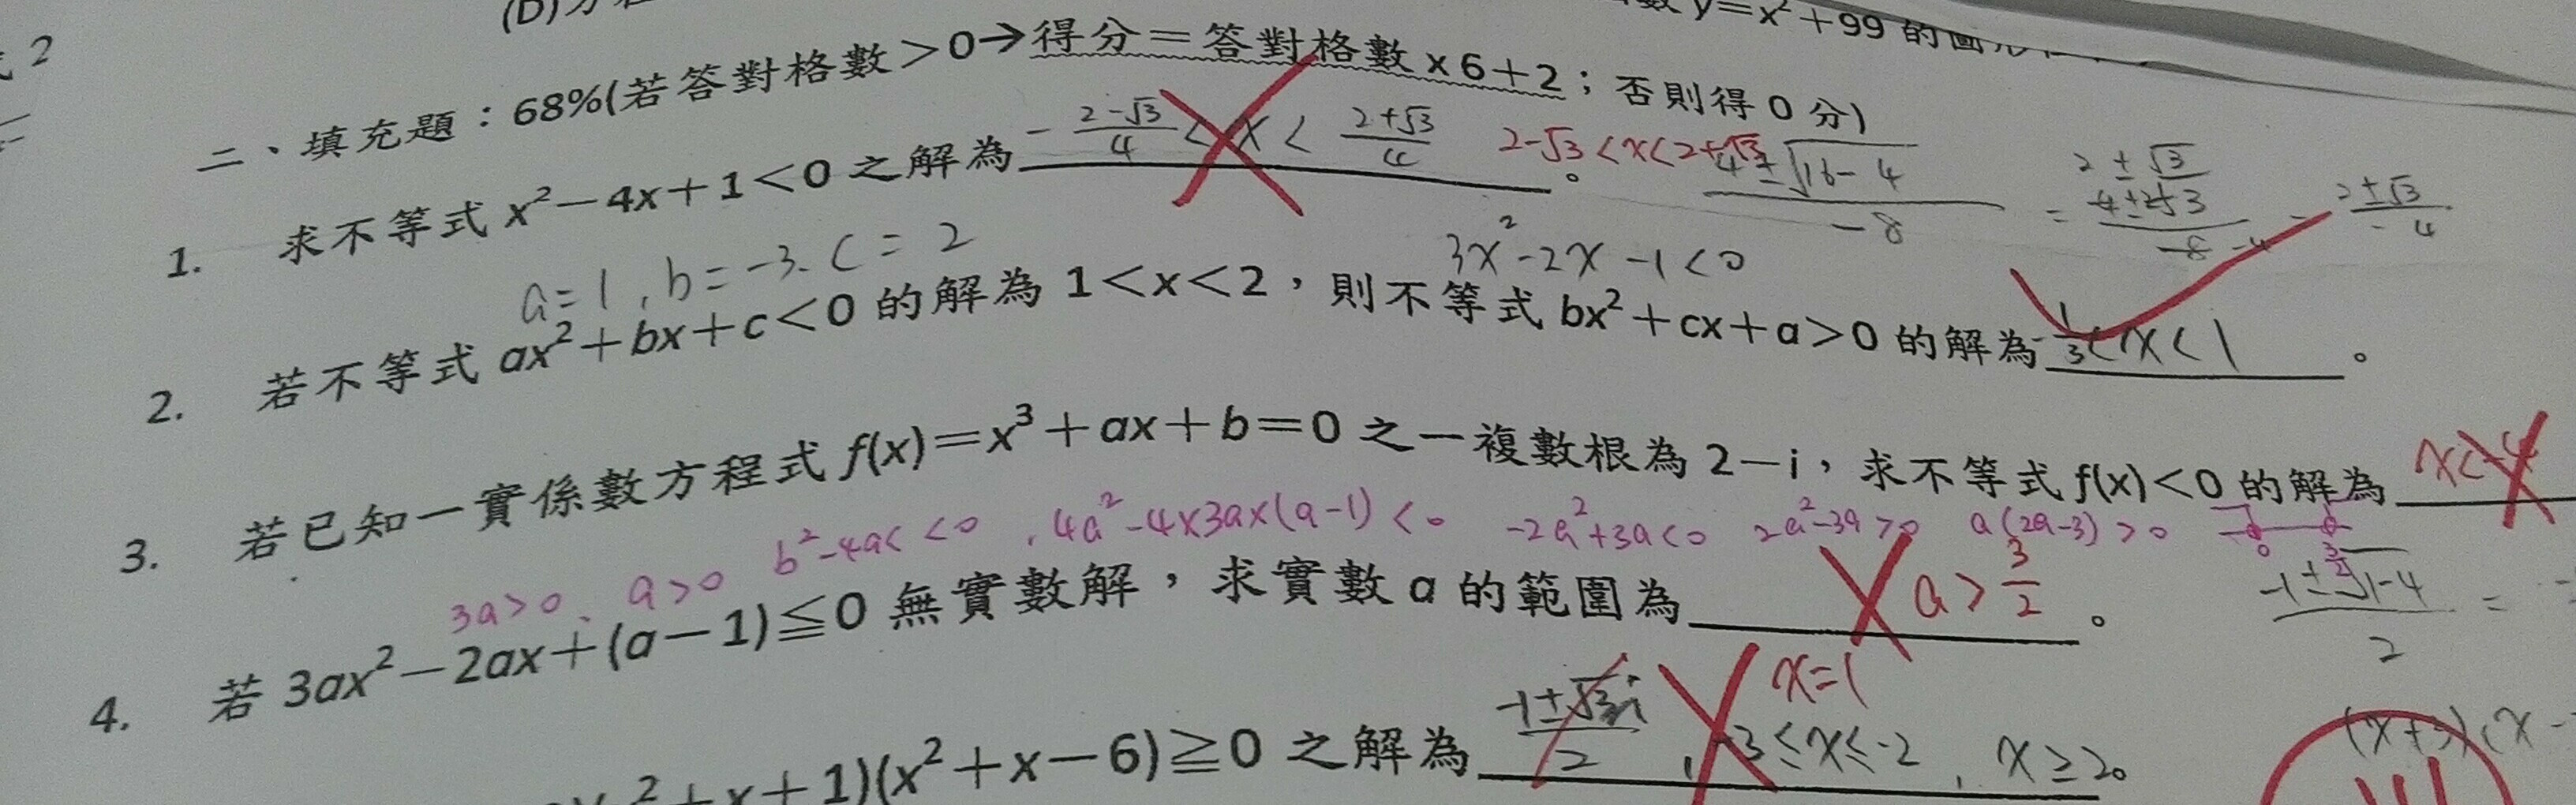 數 y=x²+99 的圖
二、填充題：68%(若答對格數>0→得分=答對格數×6+2；否則得 0 分)
1. 求不等式 x²−4x+1<0 之解為 -(2-√3)/4 < x < (2+√3)/4 。 2-√3<x<2+√3
(4±√(16-4))/-8 = (4±2√3)/-8 = (2±√3)/-4
a=1, b=-3. c=2
3x²-2x-1<0
2. 若不等式 ax²+bx+c<0 的解為 1<x<2，則不等式 bx²+cx+a>0 的解為 -1/3<x<1 。
3. 若已知一實係數方程式 f(x)=x³+ax+b=0 之一複數根為 2−i，求不等式 f(x)<0 的解為 x<-4
3a>0、a>0 b²-4ac<0 , 4a²-4×3a×(a-1)<0 -2a²+3a<0 2a²-3a>0 a(2a-3)>0 0 3/2
4. 若 3ax²−2ax+(a−1)≦0 無實數解，求實數 a 的範圍為 a>3/2 。
(-1±√(1-4))/2 =
x²+x+1)(x²+x−6)≧0 之解為 (-1±√3i)/2 , -3≤x≤-2 , x≥2。 x=1
(x+3)(x-